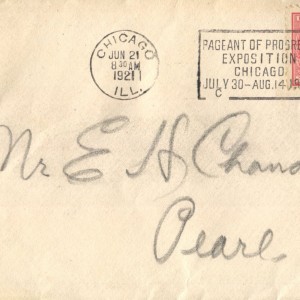 CHICAGO
JUN 21
8 30 AM
1921
ILL.
PAGEANT OF PROGRE
EXPOSITION
CHICAGO
JULY 30-AUG. 14
C
Mr E H Chand
Pearl